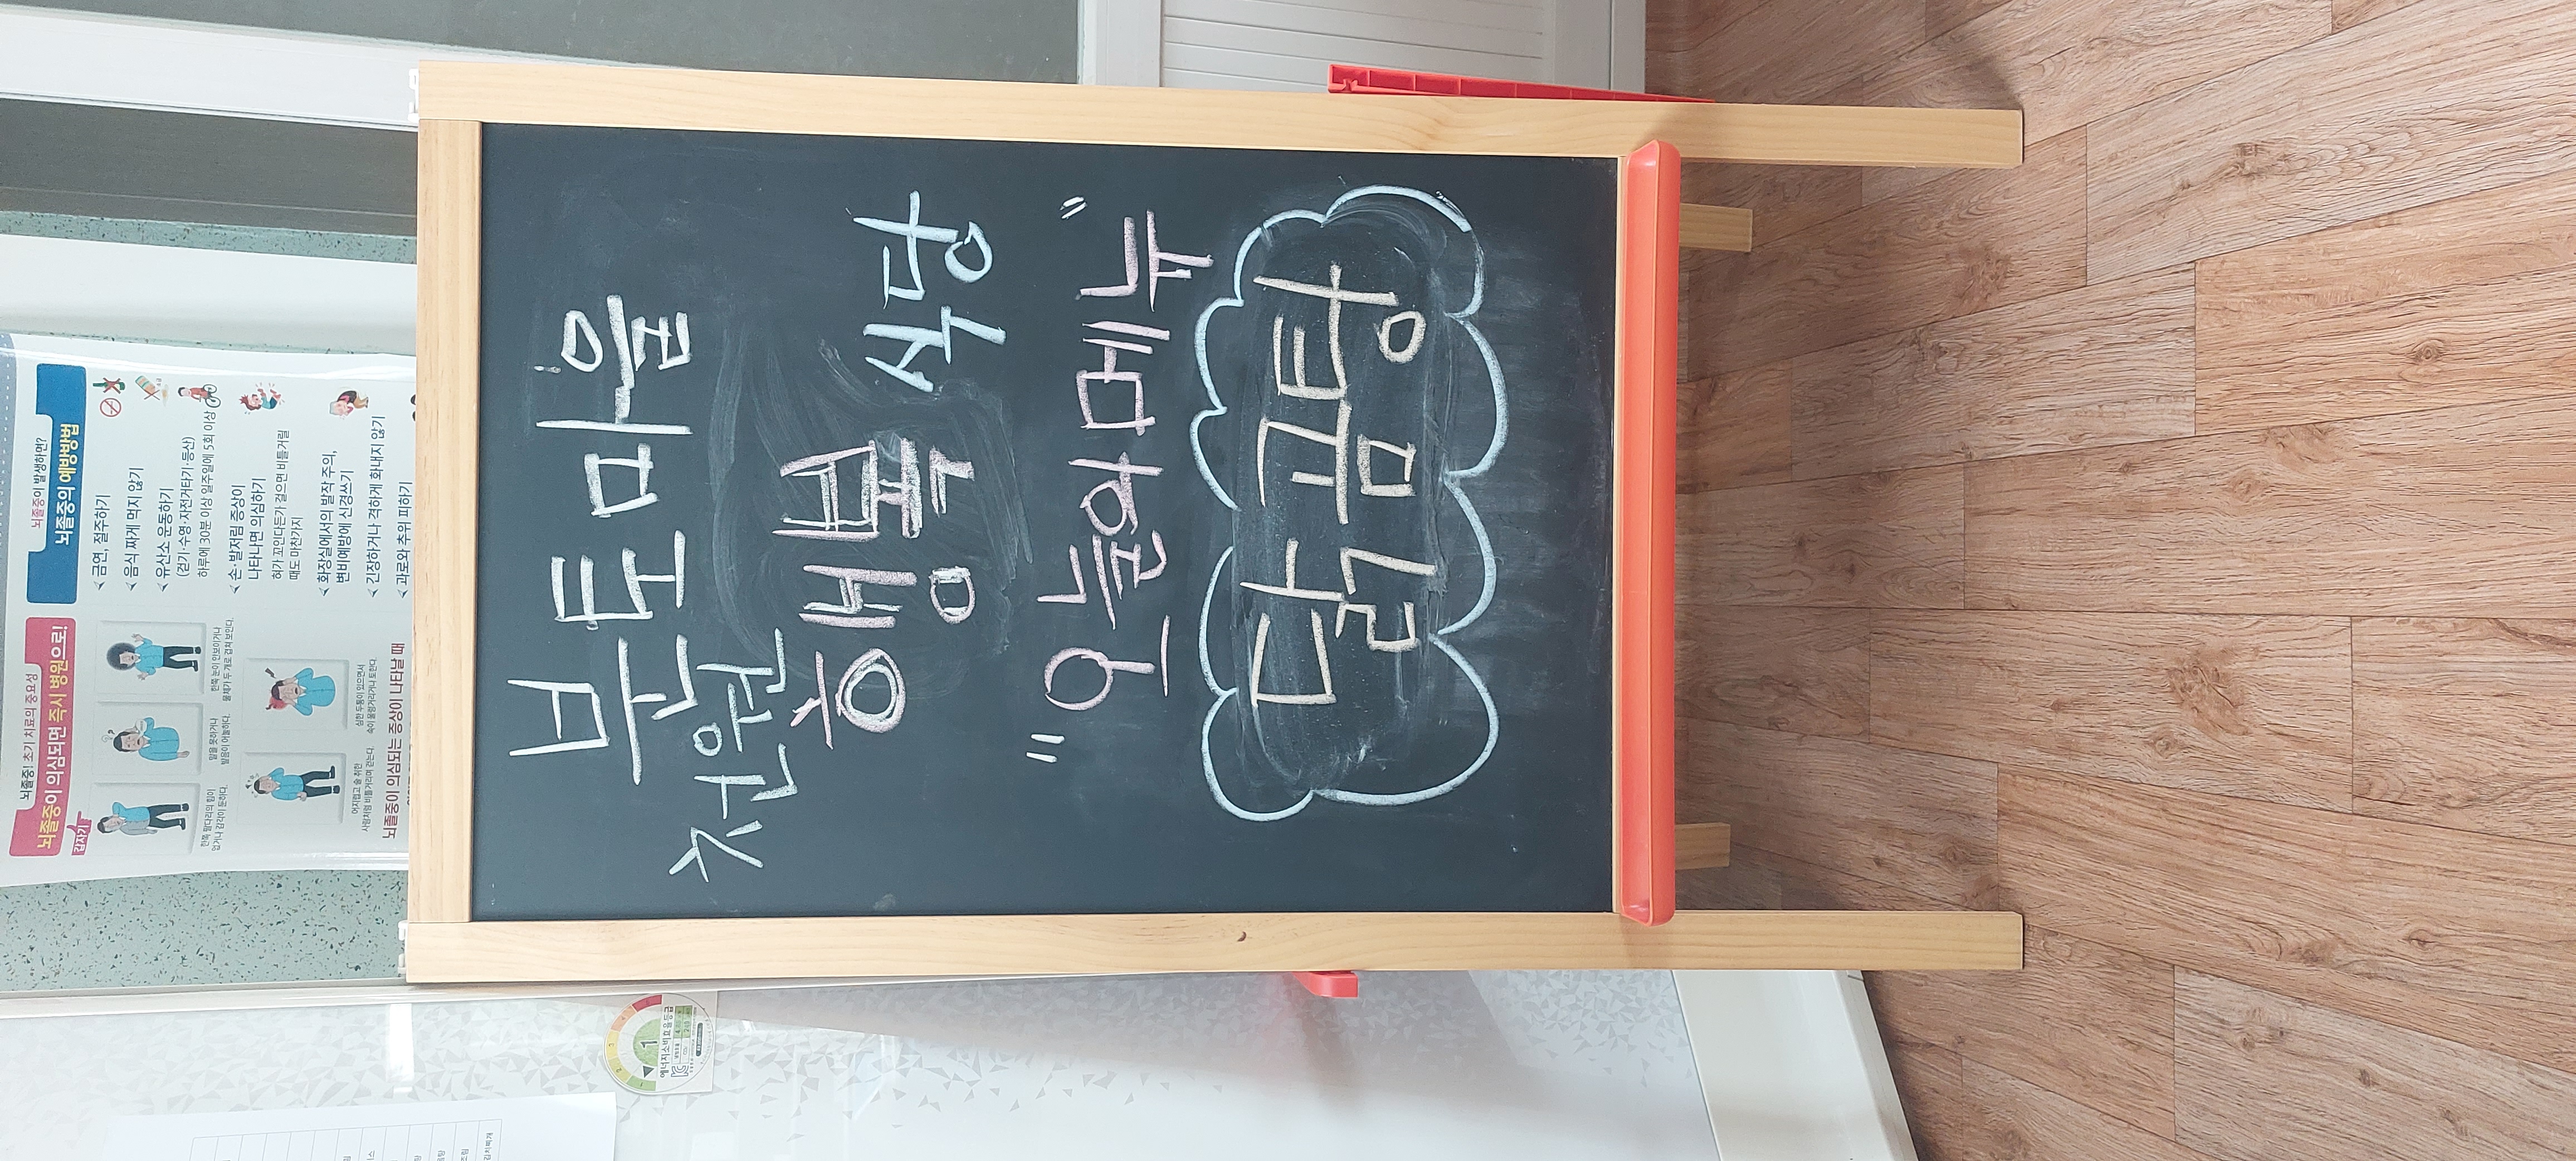 분토마을
천원
행복 식당
"오늘의 메뉴"
닭곰탕
뇌졸중! 초기 치료의 중요성
갑자기
뇌졸중이 의심되면 즉시 병원으로!
한쪽 팔다리의 힘이
없거나 감각이 둔하다.
말을 못하거나
발음이 어눌하다.
한쪽 눈이 안보이거나
물체가 두 개로 겹쳐 보인다.
어지럽고 술 취한
사람처럼 비틀거리며 걷는다.
심한 두통이 있으면서
속이 울렁거리거나 토한다.
뇌졸중이 의심되는 증상이 나타날 때
뇌졸중이 발생하면?
뇌졸중의 예방방법
금연, 절주하기
음식 짜게 먹지 않기
유산소 운동하기
(걷기·수영·자전거타기·등산)
하루에 30분 이상 일주일에 5회 이상
손·발저림 증상이
나타나면 의심하기
혀가 꼬인다든가 걸으면 비틀거릴
때도 마찬가지
화장실에서의 발작 주의,
변비예방에 신경쓰기
긴장하거나 격하게 화내지 않기
과로와 추위 피하기
1
에너지소비효율등급
김치찌개